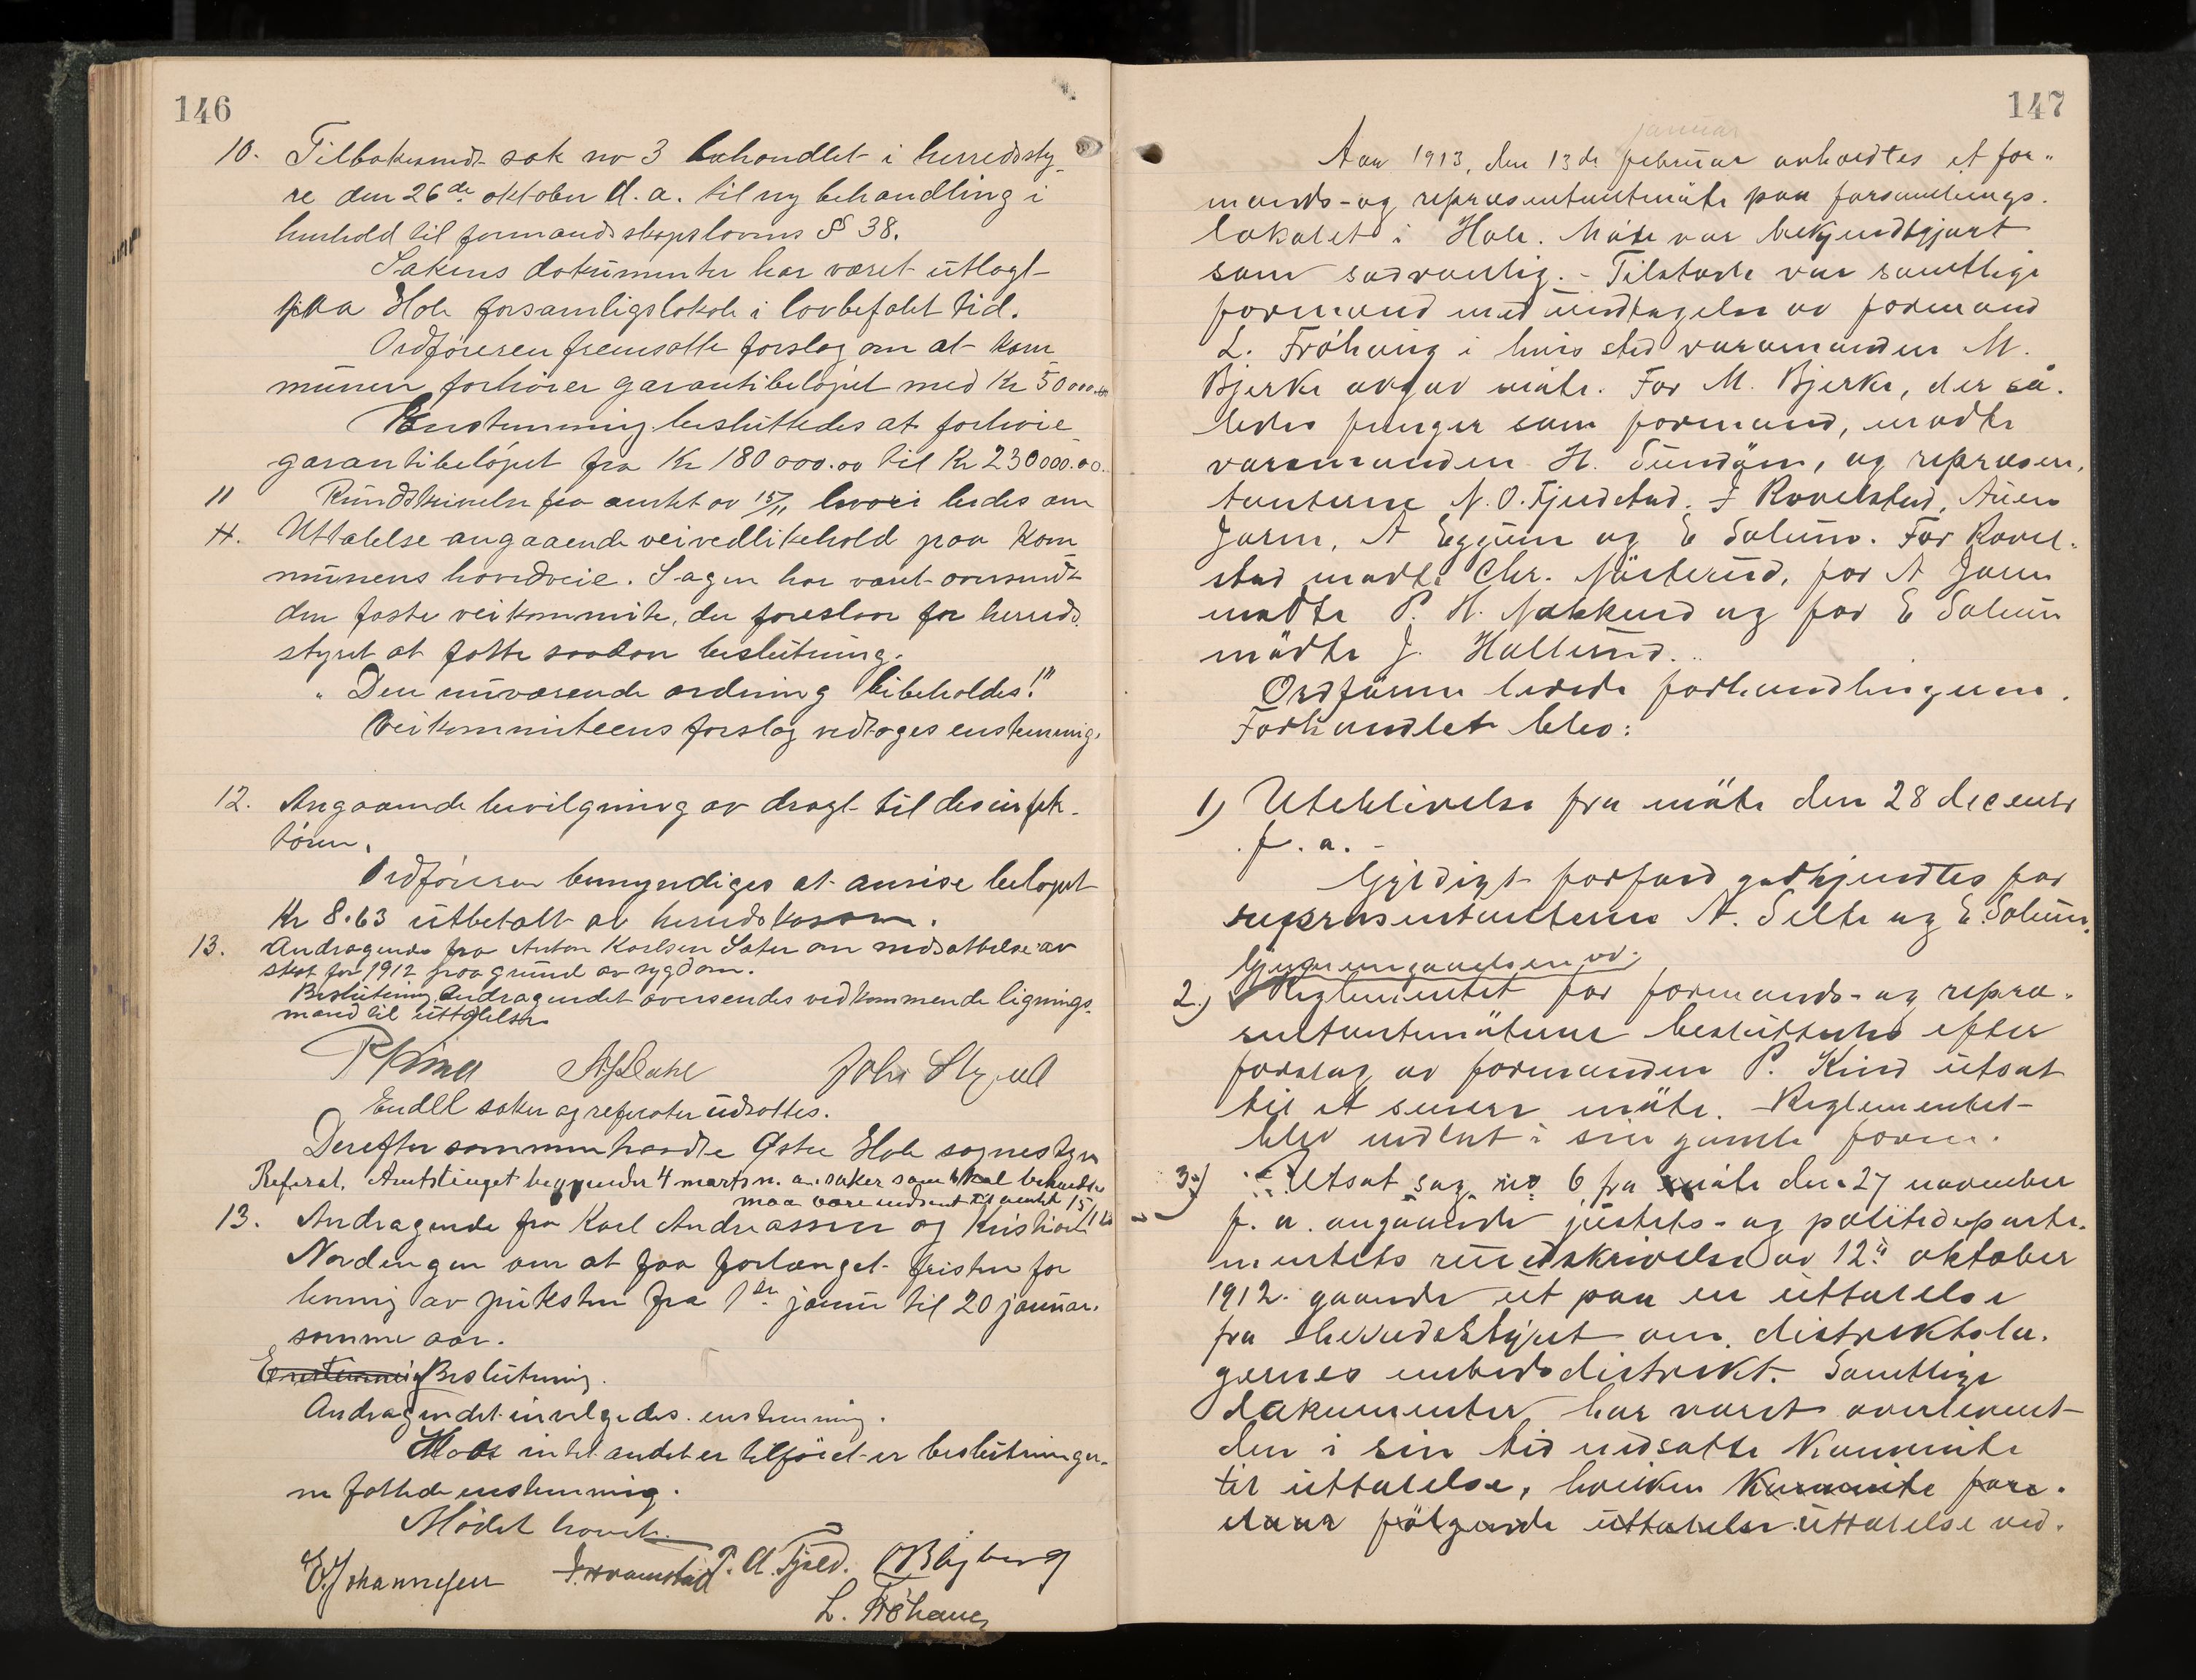 146
10. Tilbakesendt sak no 3 behandlet i herredssty-
re den 26de oktober d. a. til ny behandling i
henhold til formandsskapslovens § 38.
Sakens dokumenter har været utlagt
paa Hole forsamligslokale i lovbefalet tid.
Ordføreren fremsatte forslag om at kom
munen forhöier garantibeløpet med Kr 50000.00
Enstemmig besluttedes at forhøie
garantibeløpet fra Kr 180 000.00 til Kr 230000.00.
11 Rundskrivelse fra amtet av 15/11 hvori bedes om
Uttalelse angaaende veivedlikehold paa kom
munens hovedveie. Sagen har været oversendt
den faste veikommite, der foreslaar for herreds.
styret at fatte saadan beslutning.
"Den nuværende ordning bibeholdes!"
Veikommiteens forslag vedtoges enstemmig.
12. Angaaende bevilgning av dragt til desinfek-
tøren.
Ordføreren bemyndiges at anvise beløpet
Kr 8.63 utbetalt av herredskassen.
13. Andragende fra Anton Karlsen Sater om nedsættelse av
skat for 1912 paa grund av sygdom.
Beslutning Andragendet oversendes vedkommende lignings-
mænd til uttalelse.
John Stryed
Endel saker og referater udsattes.
Derefter sammentraadte Østre Hole sognestyre
Referat. Amtstinget begynder 4 marts n. a. saker som skal behandles
maa være indsendt til amtet 15/12
13. Andragende fra Karl Andreassen og Kristian
Nordengen om at faa forlænget fristen for
henning av fra 1ste januar til 20 januar.
samme aar.
Enstemmig Beslutning.
Andragendet invilgedes enstemmig.
Hvor intet andet er tilføiet er beslutninger-
ne fattede enstemmig.
Mødet hævet.
E. Johannesen P. A. Fjeld. O Blyberg
L. Fröhaug
147
januar
Aar 1913, den 13de februar avholdtes et for-
mands- og repræsentantmöte paa forsamlings-
lokalet i Hole. Möte var bekjendtgjort
som sædvanlig. - Tilstede var samtlige
formænd med undtagelse av formand
L. Fröhaug i hvis sted varamanden M.
Bjerke avgav möte. For M. Bjerke, der så-
ledes funger som formand, mødte
varamanden H. Sundöen, og repræsen-
tanterne N. O. Fjeldstad, F Rovelstad, Aners
Jørn, A Eggum og E Solum. For Rovel-
stad mødte Chr. Nösterud, for A Jørn
mødte P. H. Nakkerud og for E Solum
mödte J. Hallund.
Ordföreren ledede forhandlingerne.
Forhandlet blev:
1) Uteblivelse fra möte den 28 decembr
f. a. -
Gyldigt forfald godkjendtes for
repræsentanterne A. Selte og E. Solum.
Gjennemgaaelsen av
2.) Reglementet for formands- og repræ-
sentantmöterne besluttedes efter
forslag av formanden P. Kind utsat
til et senere möte. Reglementet
blev vedtat i sin gamle form.
3.) Utsat sag no 6 fra möte den 27 november
f. a. angaaende justits- og politideparte-
mentets rundskrivelse av 12te oktober
1912 gaaende ut paa en uttalelse
fra herredsstyret om distriktslæ-
gernes embedsdistrikt. Samtlige
dokumenter har været overlevert
den i sin tid nedsatte Kommite
til uttalelse, hvilken Kommite fore-
slaar følgende uttalelse uttalelse ved-